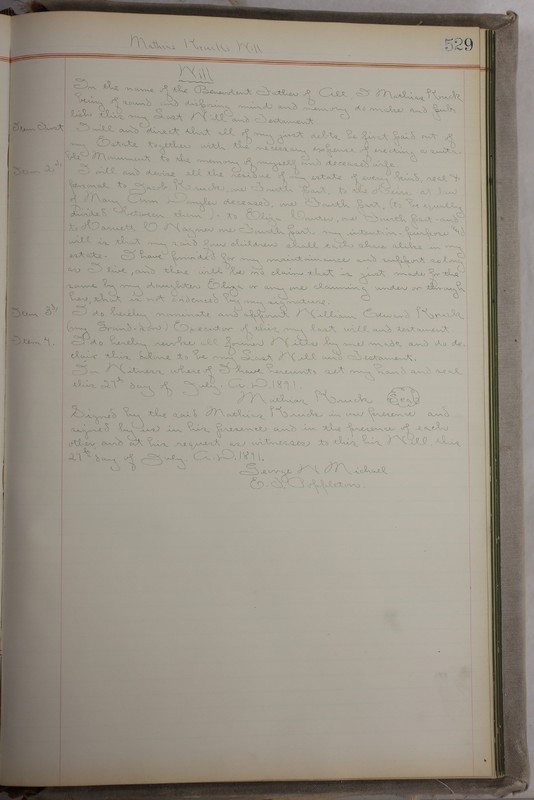 529
Will
In the name of the Benevolent Father of All I Mathias
being of sound and disposing mind and memory do make and pub-
lish this my Last Will and Testament.
Item First I will and direct that all of my just debts be first paid out of
my Estate together with the necessary expense of erecting a suita-
ble Monument to the memory of myself and deceased wife.
Item 2nd I will and devise all the residue of my estate of every kind, real &
personal to Jacob one fourth part, to the Heirs at law
of Mary Ann deceased, one fourth part, (to be equally
divided between them) to Eliza one fourth part and
to one fourth part my intention, purpose &
will is that my said four children shall each share alike in my
estate. I have provided for my maintainance and support as long
as I live, and there will be no claims that is just made for the
same by my daughter Eliza or any one claiming under or through
her, that is not endorsed by my signature.
Item 3rd I do hereby nominate and appoint William Edward
(my Grand-son) Executor of this my last will and testament.
Item 4. I do hereby revoke all former Wills by me made and do de-
clare this alone to be my Last Will and Testament.
In Witness whereof I have hereunto set my hand and seal
this 27th day of July A.D. 1891.
Mathias (Seal)
Signed by the said Mathias in our presence and
signed by us in his presence and in the presence of each
other and at his request as witnesses to this his Will, this
27th day of July A.D. 1891.
George W. Michael
E. T. Poppleton